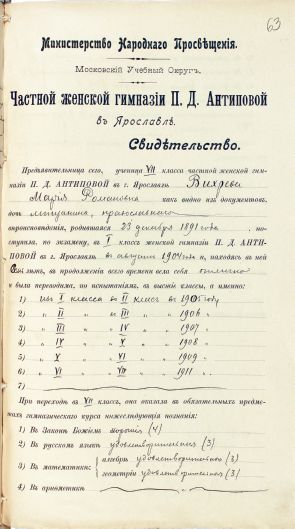 63
Министерство Народнаго Просвѣщенія.
Московскій Учебный Округъ.
Частной женской гимназіи П. Д. Антиповой
въ Ярославлѣ.
Свидѣтельство.
Предъявительница сего, ученица VII класса частной женской гим-
назіи П. Д. АНТИПОВОЙ въ г. Ярославлѣ Вихрева
Марія Романовна какъ видно изъ документовъ,
дочь мѣщанина, православнаго
вѣроисповѣданія, родившаяся 23 декабря 1891 года, по-
ступила, по экзамену, въ I классъ женской гимназіи П. Д. АНТИ-
ПОВОЙ въ г. Ярославлѣ въ августѣ 1904 года и, находясь въ ней
лѣтъ, въ продолженіи всего времени вела себя отлично
и была переводима, по испытаніямъ, въ высшіе классы, а именно:
1) изъ I класса въ II классъ въ 1905 году
2) " II " " III " " 1906 "
3) " III " " IV " " 1907 "
4) " IV " " V " " 1908 "
5) " V " " VI " " 1909 "
6) " VI " " VII " " 1911 "
7)
При переходѣ въ VII классъ, она оказала въ обязательныхъ предме-
тахъ гимназическаго курса нижеслѣдующія познанія:
1) Въ Законѣ Божіемъ хорошія (4)
2) Въ русскомъ языкѣ удовлетворительныя (3)
3) Въ математикѣ: алгебрѣ удовлетворительныя (3)
геометріи удовлетворительныя (3)
4) Въ ариѳметикѣ